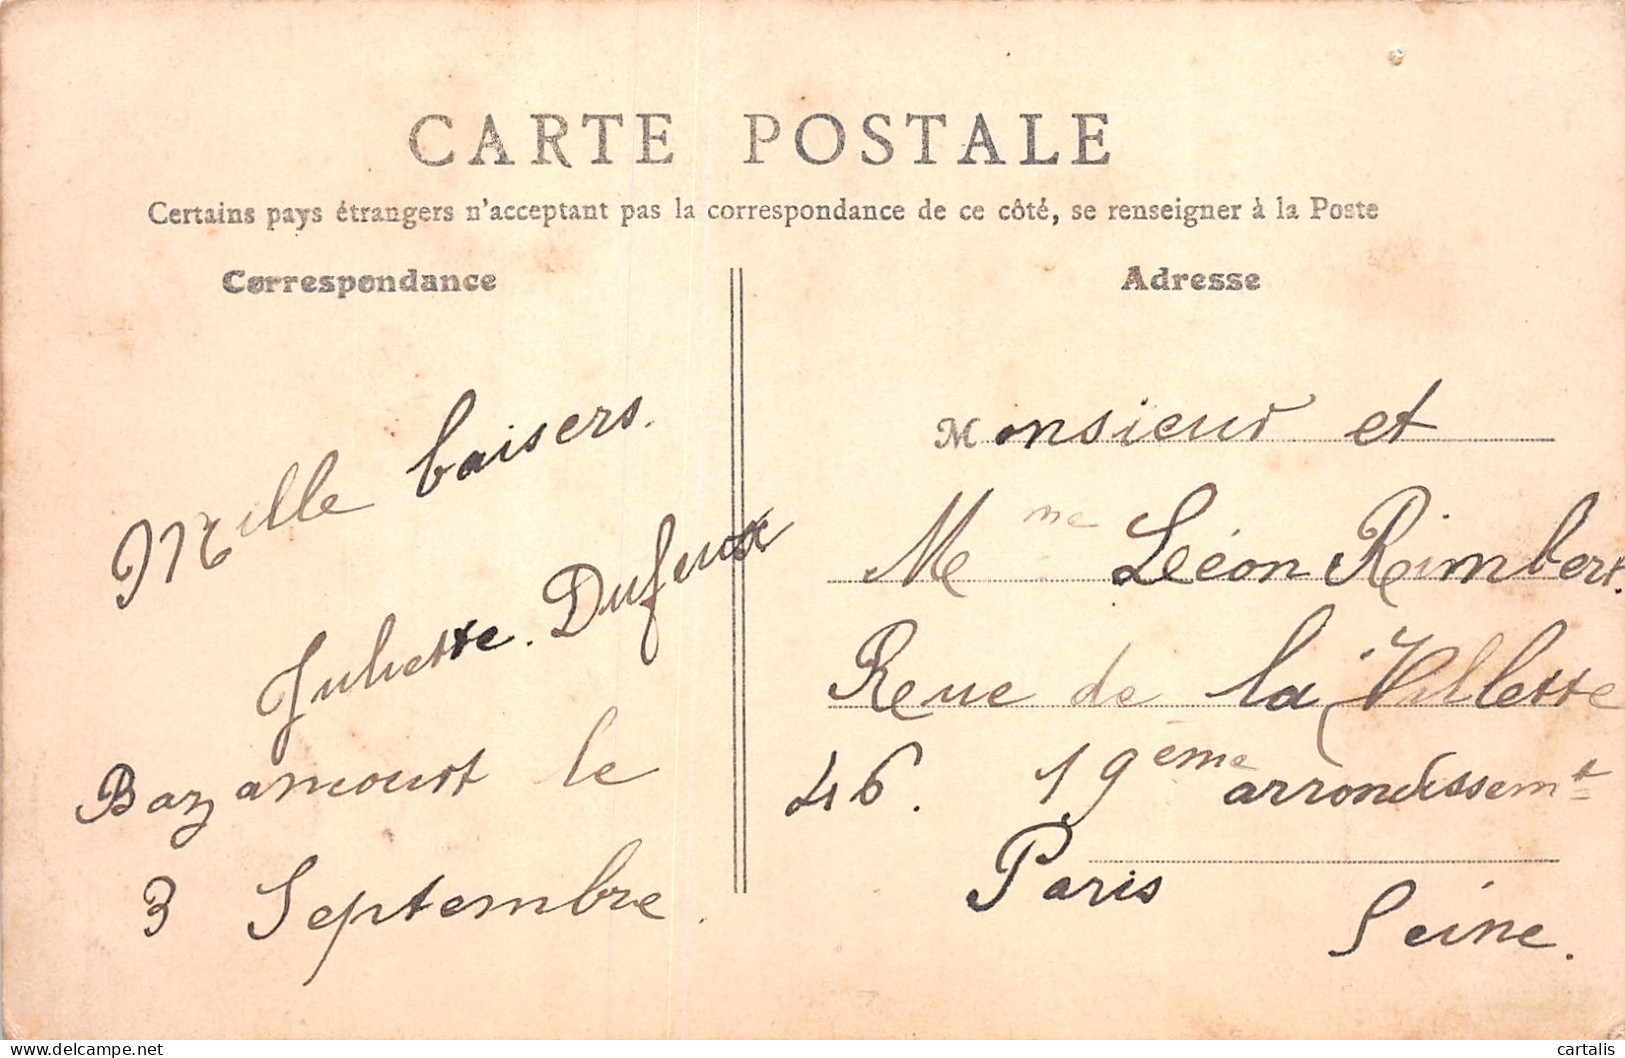 CARTE POSTALE
Certains pays étrangers n'acceptant pas la correspondance de ce côté, se renseigner à la Poste
Correspondance
Mille baisers.
Juliette. Dufeux
Bazancourt le
3 Septembre.
Adresse
Monsieur et
Me me Léon Rimbert.
Reue de la Villette
46. 19ème arrondissemt
Paris
Seine.
www.delcampe.net
cartalis